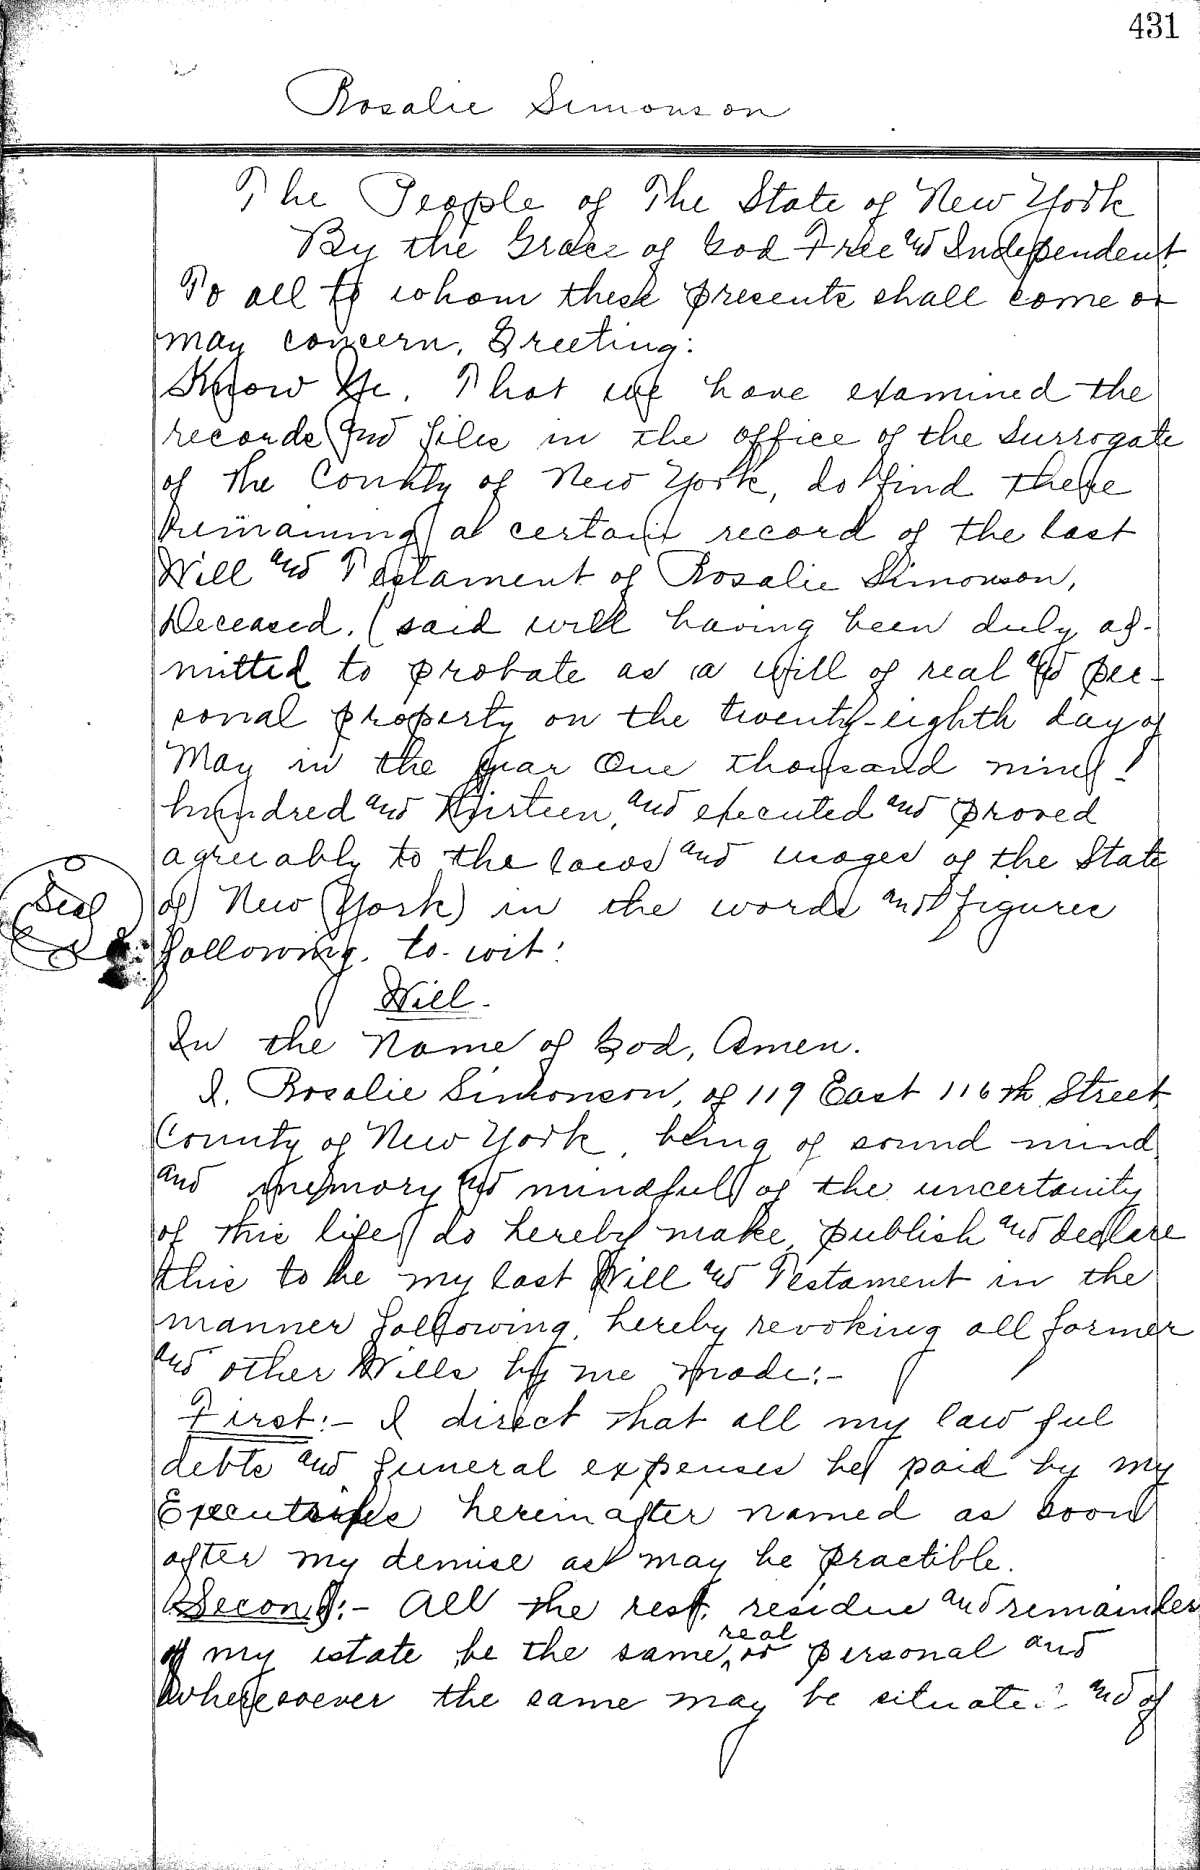 431
Rosalie Simonson
The People of The State of New York
By the Grace of God Free and Independent
To all to whom these presents shall come or
may concern, Greeting:
Know Ye. That we have examined the
records and files in the office of the Surrogate
of the County of New York, do find there
remaining a certain record of the last
Will and Testament of Rosalie Simonson,
Deceased. (said will having been duly ad-
mitted to probate as a will of real and per-
sonal property on the twenty-eighth day of
May in the year One thousand nine
hundred and thirteen, and executed and proved
agreeably to the laws and usages of the State
Seal
of New York) in the words and figures
following. to-wit:
Will.
In the Name of God, Amen.
I. Rosalie Simonson, of 119 East 116th Street
County of New York, being of sound mind
and memory and mindful of the uncertanity
of this life, do hereby make, publish and declare
this to be my last Will and Testament in the
manner following, hereby revoking all former
and other Wills by me made:-
First:- I direct that all my law ful
debts and funeral expenses be paid by my
hereinafter named as soon
after my demise as may be practible.
Second:- All the rest, residue and remainder
of my estate be the same, real or personal and
wheresoever the same may be situated and of